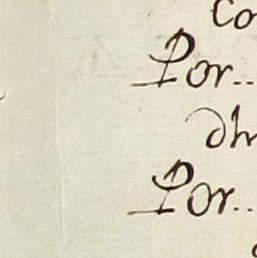 Co
Por..
dh
Por..